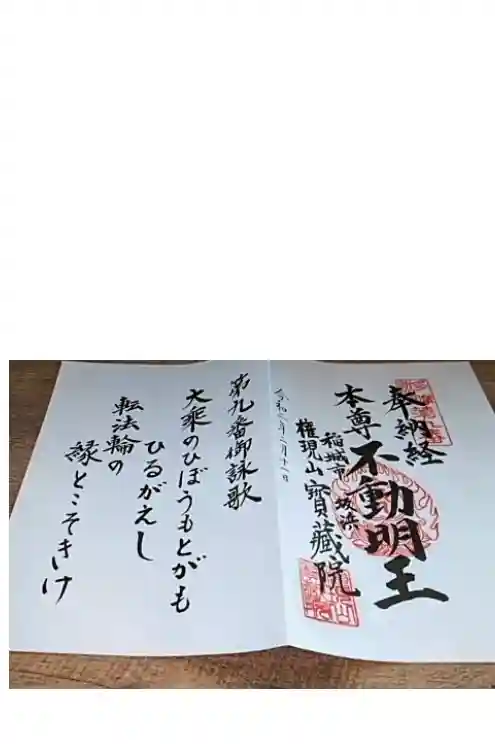 奉納経
本尊 不動明王
稲城市 坂浜
権現山 寳藏院
第九番御詠歌
大乗のひぼうもとがも
ひるがえし
転法輪の
縁とこそきけ